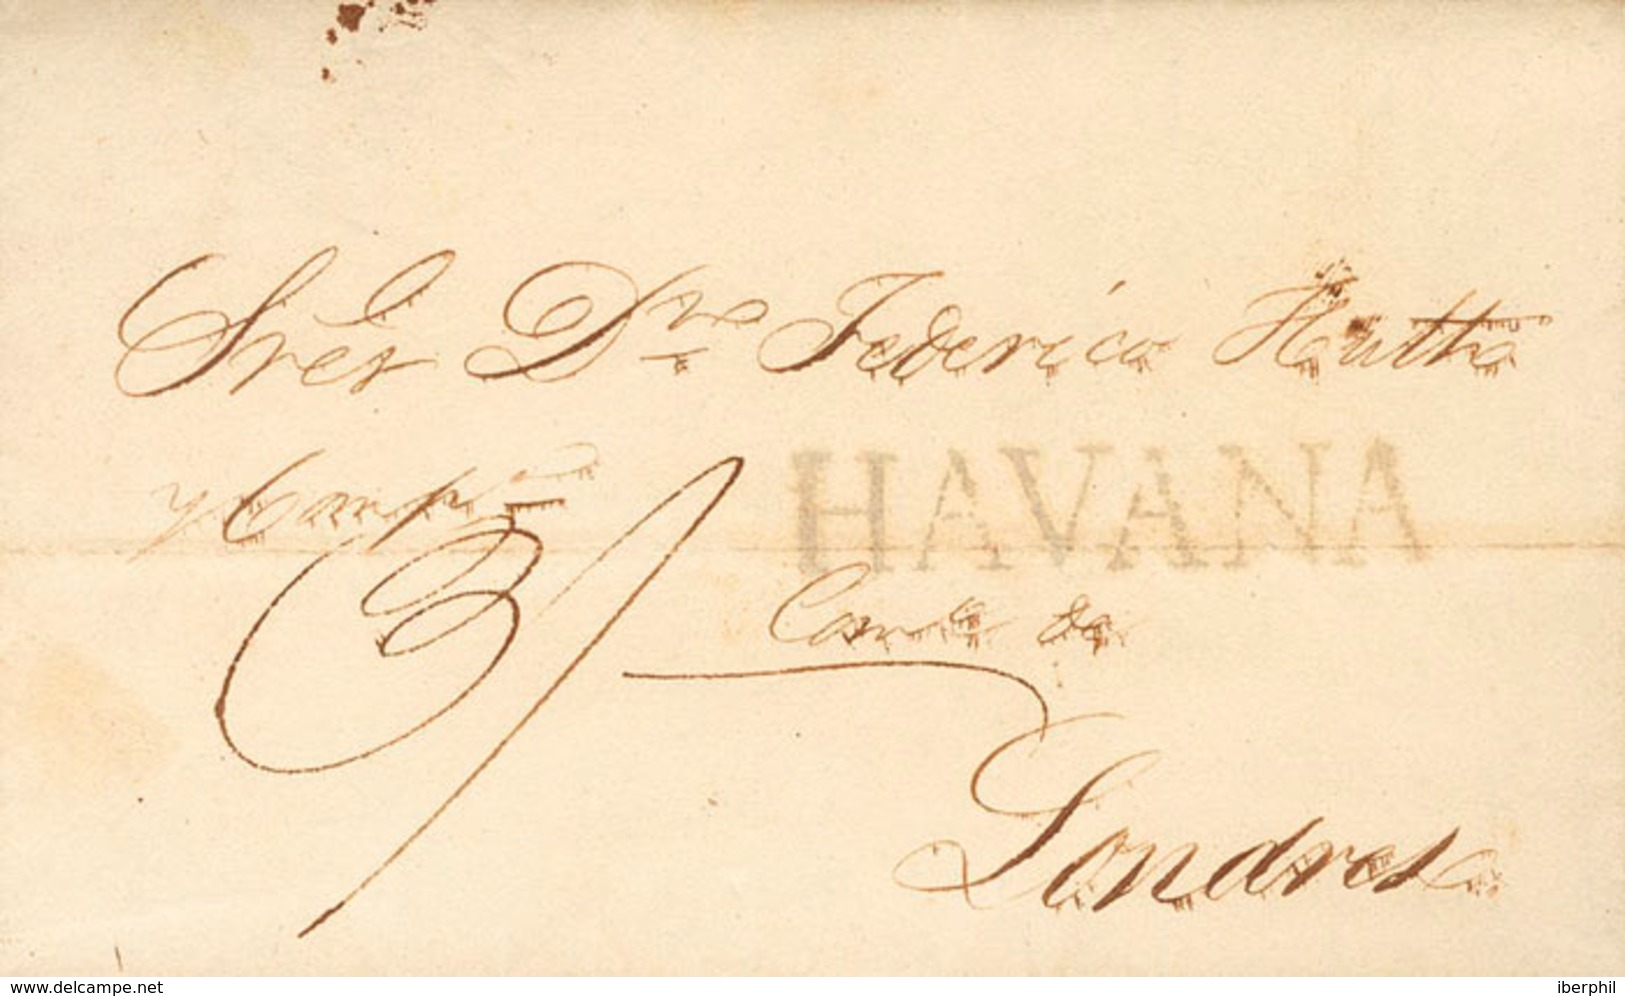 Sres Dn Federico Hutth
y Comp.a
HAVANA
3/
Londres
www.delcampe.net
iberphil